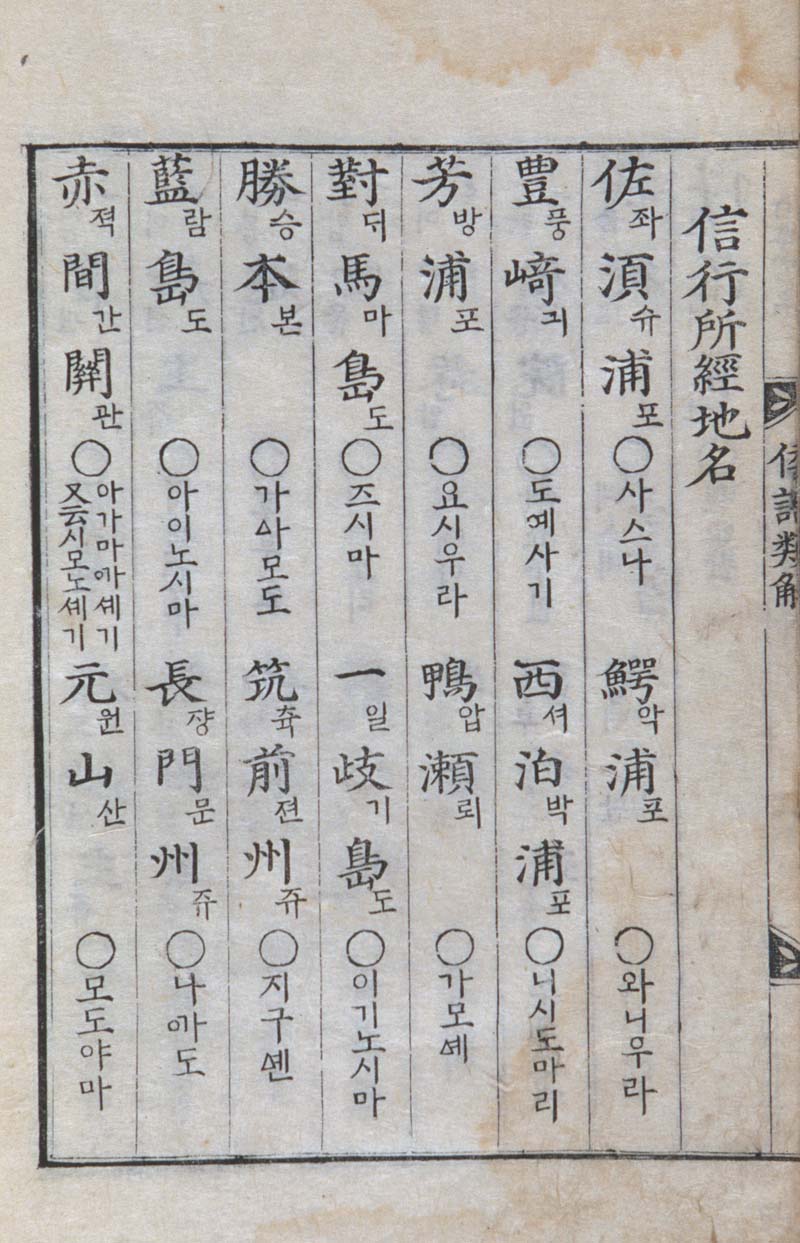 倭語類解
信行所經地名
佐좌須슈浦포○사스나 鰐악浦포○와니우라
豊풍﨑긔○도예사기 西셔泊박浦포○니시도마리
芳방浦포○요시우라 鴨압瀬뢰○가모셰
對ᄃᆡ馬마島도○즈시마 一일歧기島도○이기노시마
勝승本본○가ᅀᅡ모도 筑츅前젼州쥬○지구ᅀᅨᆫ
藍람島도○아이노시마 長쟝門문州쥬○나ᅁᅡ도
赤젹間간關관○아가마ᅁᅡ셰기 又云시모노셰기 元원山산○모도야마